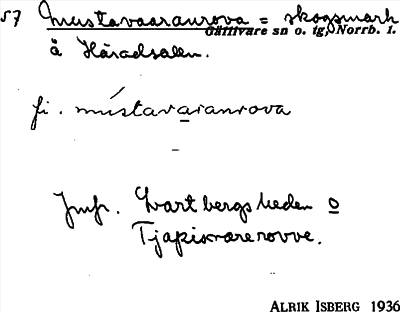 57 Mustavaaranrova = skogsmark
Gällivare sn o. tg, Norrb. l.
å Häradsalen.
fi. mústavaranrova
Jmfr. Svartbergsheden o
Tjapisvarerovve.
ALRIK ISBERG 1936